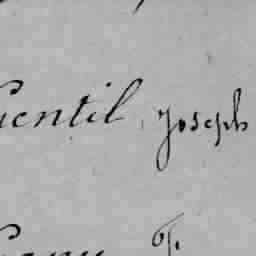 Gentil, Joseph